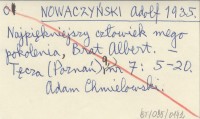 01 NOWACZYŃSKI Adolf 1935.
Najpiękniejszy człowiek mego
pokolenia, Brat Albert.
Tęcza (Poznań) nr 7: 5-20.
Adam Chmielowski.